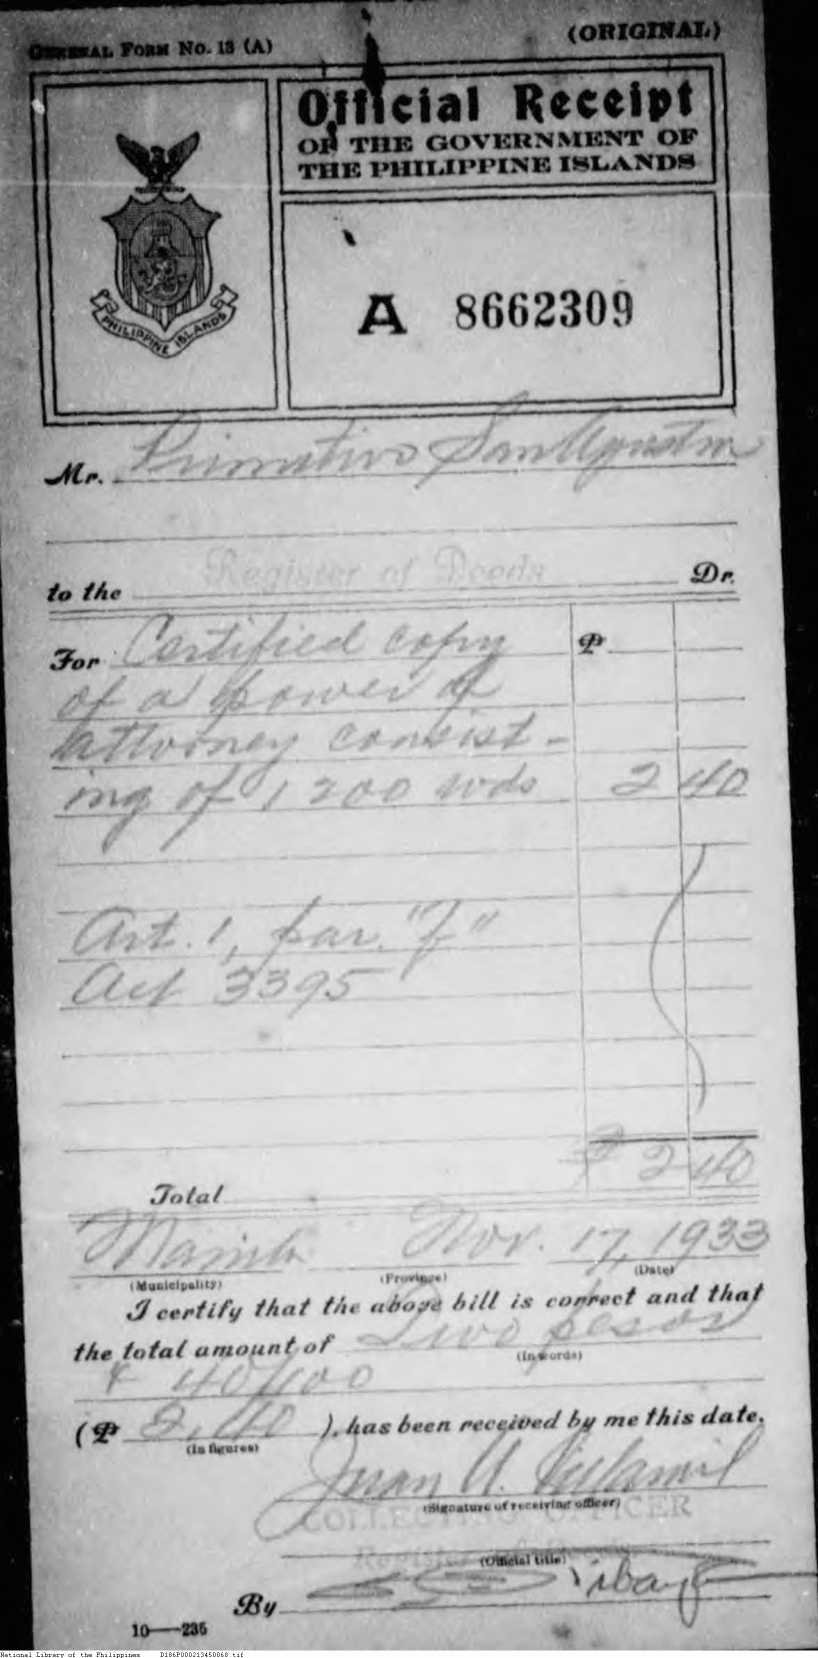 GENERAL FORM NO. 13 (A)
(ORIGINAL)
Official Receipt
OF THE GOVERNMENT OF
THE PHILIPPINE ISLANDS
PHILIPPINE ISLANDS
A 8662309
Mr. Primitivo San Agustin
to the Register of Deeds Dr.
For Certified copy ₱
of a power of
attorney consist-
ing of 1200 wds 2 40
Art. 1, par. "f"
Act 3395
Total ₱ 2 40
Manila Nov. 17, 1933
(Municipality) (Province) (Date)
I certify that the above bill is correct and that
the total amount of Two pesos
(In words)
& 40/100
(₱ 2.40 ), has been received by me this date.
(In figures)
Juan A.
(Signature of receiving officer)
COLLECTING OFFICER
Register of Deeds
(Official title)
By
10—235
National Library of the Philippines D186P000213450068.tif